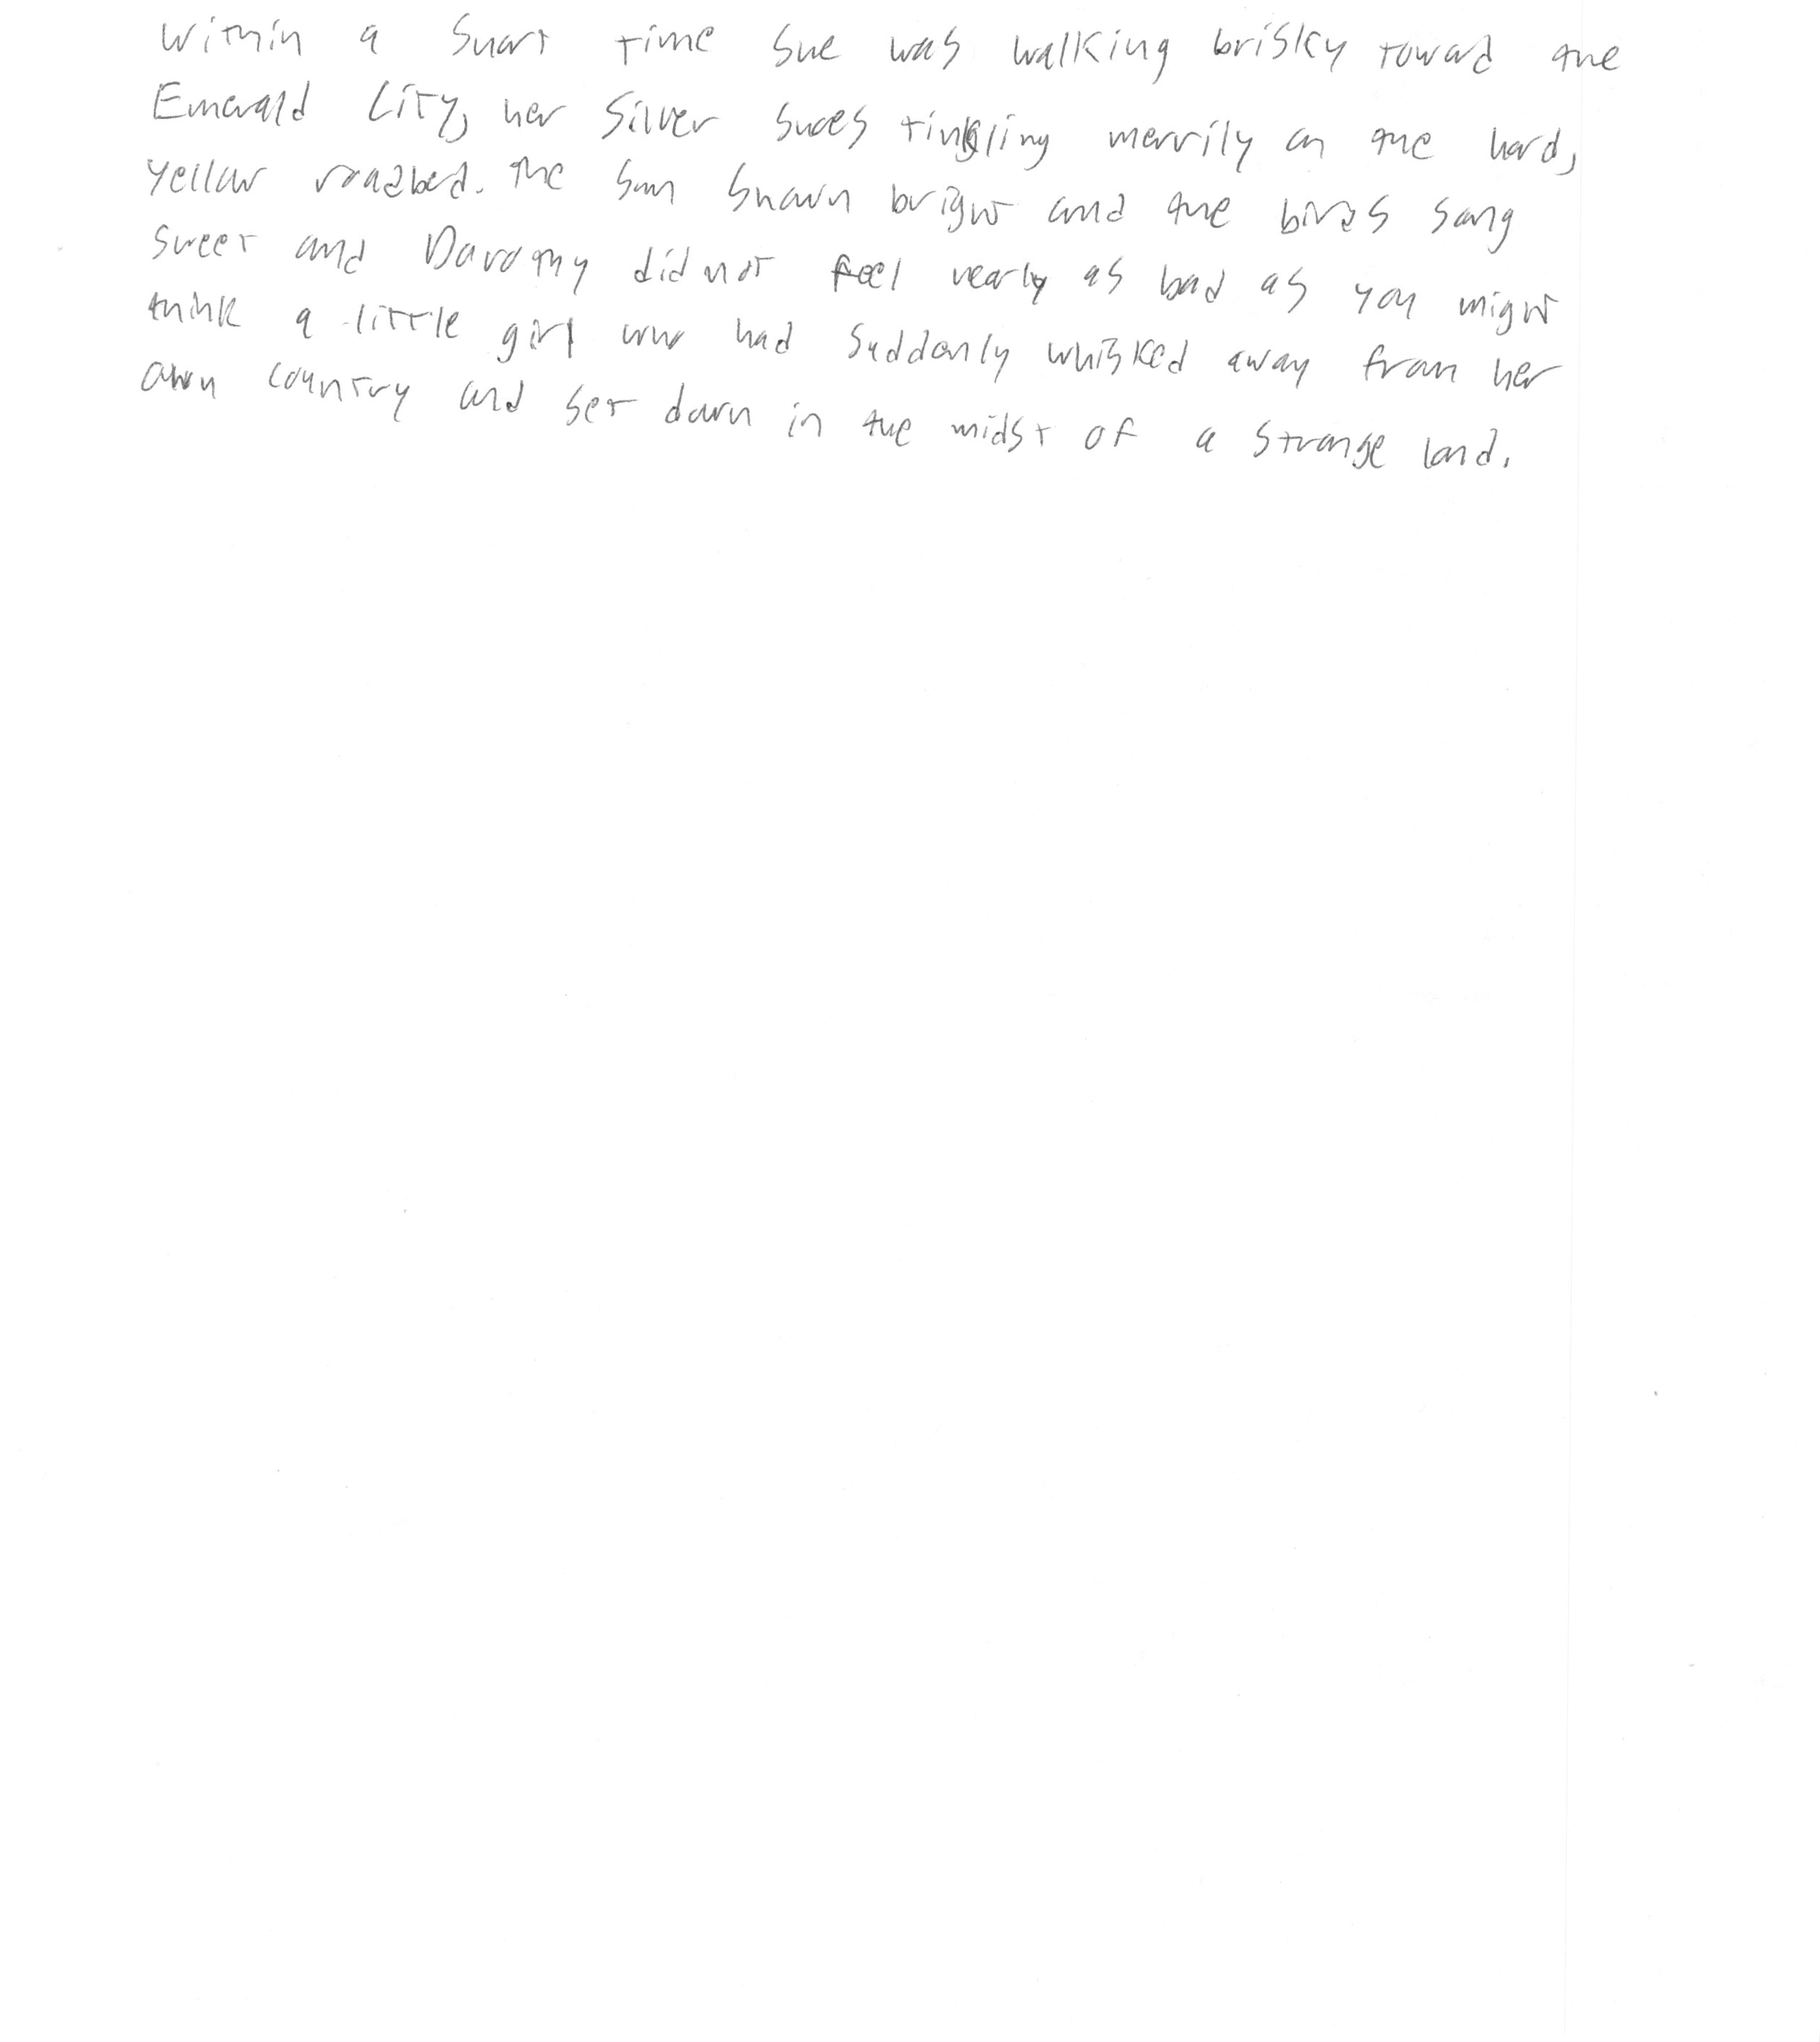 Within a short time she was walking brisky toward the
Emerald City, her Silver Shoes tinkling merrily on the hard,
yellow roadbed. The sun shown bright and the birds sang
sweet and Dorothy did not feel nearly as bad as you might
think a little girl who had suddenly whisked away from her
own country and set down in the midst of a strange land.